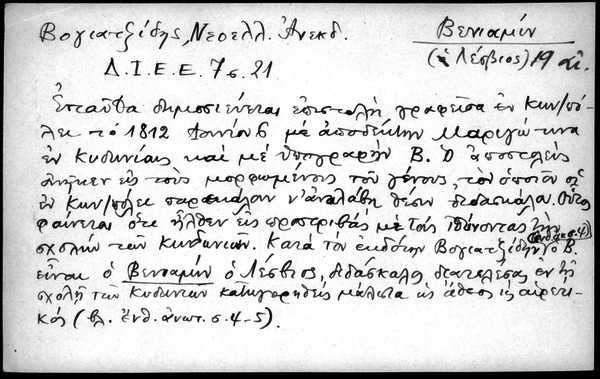 Βογιατζίδης, Νεοελλ. Ἀνεκδ.
Βενιαμίν
(ὁ Λέσβιος) 19 αἰ.
Δ.Ι.Ε.Ε. 7 σ. 21
Ἐνταῦθα δημοσιεύεται ἐπιστολὴ γραφεῖσα ἐν Κων/πό-
λει τὸ 1812 Ἰουνίου 6 μὲ ἀποδέκτην Μαριγώ τινα
ἐν Κυδωνίαις καὶ μὲ ὑπογραφὴν Β. Ὁ ἀποστολεὺς
ἀνῆκεν εἰς τοὺς μορφωμένους τοῦ γένους, τὸν ὁποῖον οἱ
ἐν Κων/πόλει παρεκάλουν ν' ἀναλάβῃ θέσιν διδασκάλου. Οὗτος
φαίνεται ὅτι ἦλθεν εἰς προστριβὰς μὲ τοὺς ἰθύνοντας τὴν
σχολὴν τῶν Κυδωνιῶν. Κατὰ τὸν ἐκδότην Βογιατζίδην (ἔνθ. ἀν. σ. 4) ὁ Β.
εἶναι ὁ Βενιαμίν ὁ Λέσβιος, διδάσκαλος διατελέσας ἐν τῇ
σχολῇ τῶν Κυδωνιῶν κατηγορηθεὶς μάλιστα ὡς ἄθεος καὶ αἱρετι-
κός (βλ. ἔνθ. ἀνωτ. σ. 4-5).